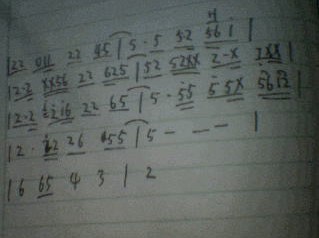 |22 011 22 45|5·5 52 561|
|2·2 xx56 22 625|52 52xx 2-x 2xx|
|2·2 1216 22 65|5·55 55x 5612|
|2· 22 26 55|5 - - - |
|6 65 4 3|2